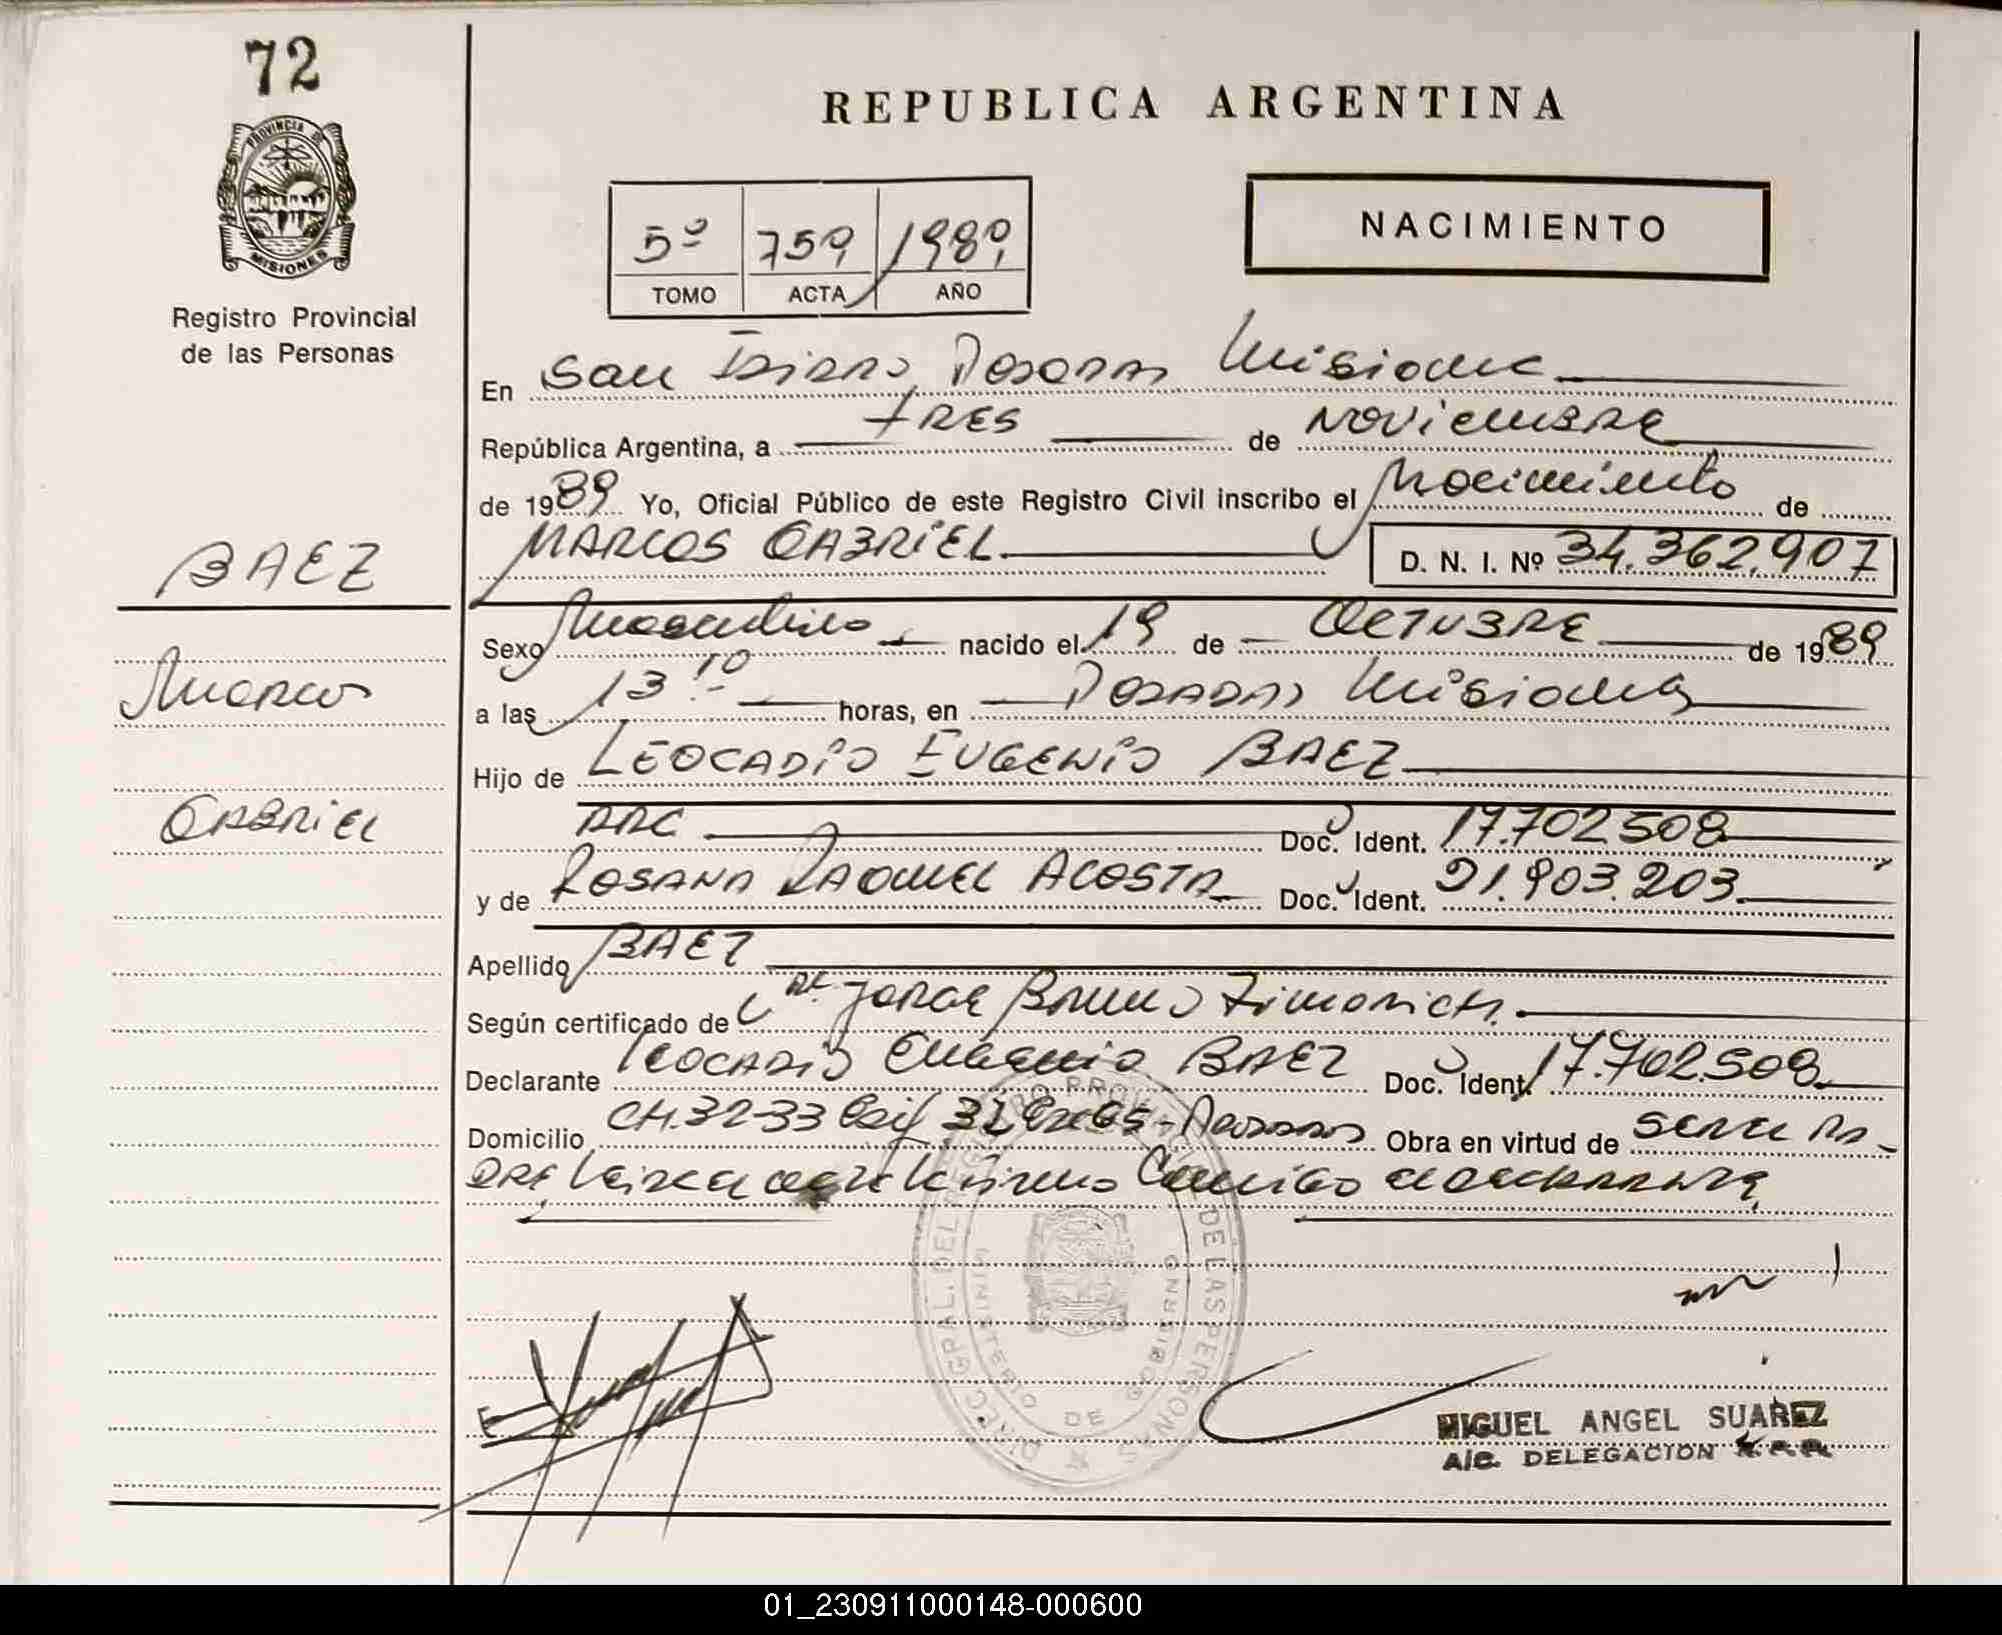 72
PROVINCIA DE
MISIONES
Registro Provincial
de las Personas
REPUBLICA ARGENTINA
5º 759 1989
TOMO ACTA AÑO
NACIMIENTO
En San Isidro, Posadas Misiones
República Argentina, a TRES de Noviembre
de 1989 Yo, Oficial Público de este Registro Civil inscribo el Nacimiento de
MARCOS GABRIEL D. N. I. Nº 34.362.907
BAEZ
Marcos
GABRIEL
Sexo Masculino nacido el 19 de OCTUBRE de 1989
a las 13:10 horas, en Posadas Misiones
Hijo de LEOCADIO EUGENIO BAEZ
ARG Doc. Ident. 17.702508
y de ROSANA RAQUEL ACOSTA Doc. Ident. 21.903.203
Apellido BAEZ
Según certificado de Dr. Jorge Bruno Zimovich
Declarante LEOCADIO Eugenio BAEZ Doc. Ident. 17.702.508
Domicilio CH.32-33 Edif 32 Posadas Obra en virtud de ser el PA-
DRE conmigo
DIREC. GRAL. DEL REGISTRO PROVINCIAL DE LAS PERSONAS
MINISTERIO DE GOBIERNO
MIGUEL ANGEL SUAREZ
A/C. DELEGACION
01_230911000148-000600